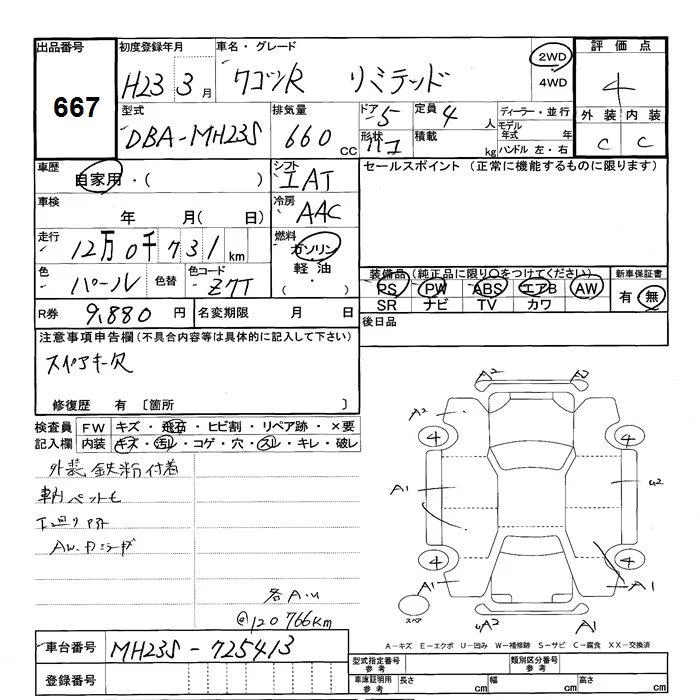 出品番号 初度登録年月 車名・グレード 2WD 評価点
667 H23 3月 ワゴンR リミテッド 4WD 4
型式 排気量 ドア 5 定員 4人 ディーラー・並行 外装 内装
DBA-MH23S 660 CC 形状 積載 kg モデル年式 年 C C
ハンドル 左・右
車歴 自家用・( ) シフト IAT セールスポイント (正常に機能するものに限ります)
車検 年 月( 日) 冷房 AAC
走行 12万0千731km 燃料 ガソリン
軽油
・
色 パール 色替 色コード Z7T 装備品(純正品に限り○をつけてください) 新車保証書
PS PW ABS エアB AW 有・無
SR ナビ TV カワ
R券 9,880円 名変期限 月 日 後日品
注意事項申告欄(不具合内容等は具体的に記入して下さい)
スペアキー欠
修復歴 有 〔箇所 〕
検査員 FW キズ・飛石・ヒビ割・リペア跡・×要
記入欄 内装 キズ・汚レ・コゲ・穴・スレ・キレ・破レ
外装 鉄粉付着
車内 ペット毛
AW.カラーダ
各A.u
@120766km
A2 A2
A2
4 4
A1 u2
4 4
A1 A1
スペア uA2 A1
A-キズ E-エクボ U-凹み W-補修跡 S-サビ C-腐食 XX-交換済
車台番号 MH23S-725413 型式指定番号 参考 類別区分番号 参考
登録番号 車庫証明用 参考 長さ cm 幅 cm 高さ cm